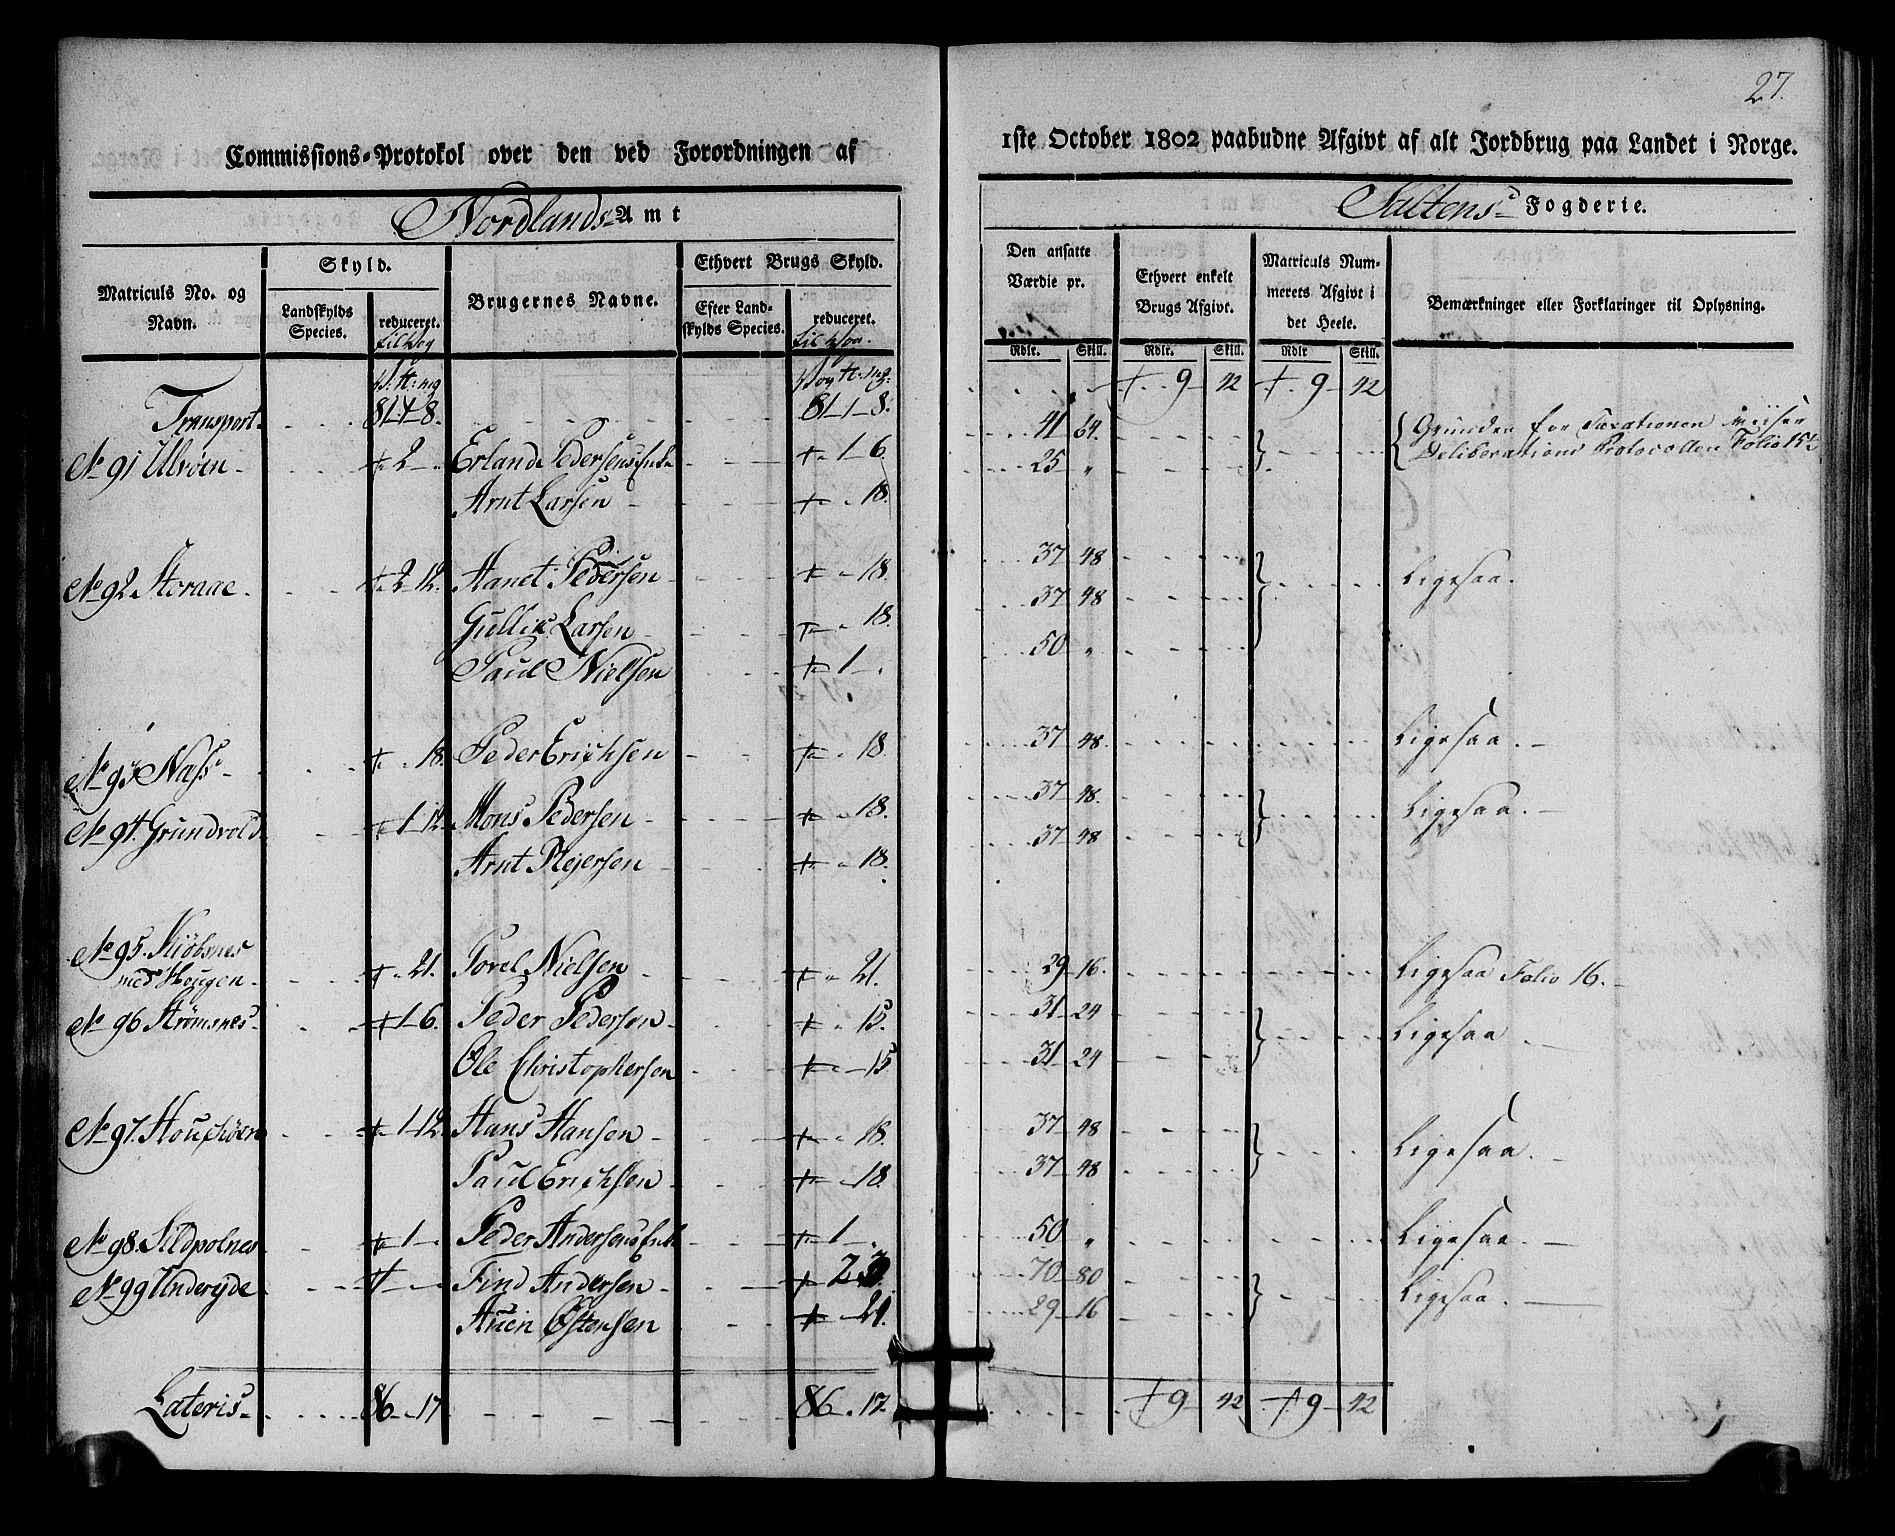 27.
Commissions-Protokol over den ved Forordningen af
1ste October 1802 paabudne Afgivt af alt Jordbrug paa Landet i Norge.
Nordlands Amt
Saltens Fogderie.
Matriculs No. og Navn.
Skyld.
Landskylds Species.
reduceret. til Vog
Brugernes Navne.
Ethvert Brugs Skyld.
Efter Landskylds Species.
reduceret. til Vog.
Den ansatte Værdie pr.
Ethvert enkelt Brugs Afgivt.
Matriculs Nummerets Afgivt i det Heele.
Bemærkninger eller Forklaringer til Oplysning.
Rdlr. Skill. Rdlr. Skill. Rdlr Skill.
Transport. 81-1-8. 81-1-8. 9-42 9-42
No 91 Ulvöen 2- Erland Pedersens Enke 1-6. 41-64. Grunden for Taxationen viiser
Deliberations Protocollen Folio 15
Arnt Larsen 18. 25 "
No 92 Storaae. 2-12. Aanet Pedersen 18. 37-48 Ligesaa.
Gullik Larsen 18. 37-48
Paul Nielsen 1-. 50 "
No 93 Næss 18. Peder Erichsen 18 37-48. Ligesaa.
No 94. Grundvold 1-12. Mons Pedersen 18. 37-48. Ligesaa.
Arnt Rejersen 18. 37-48
No 95. Kiöbsnes
med Hougen 21. Torel Nielsen 21. 29-16. Ligesaa Folio 16.
No 96 Strömsnes 1-6. Peder Pedersen 15. 31-24 Ligesaa
Ole Christophersen 15 31-24
No 97. 1-12. Hans Hansen 18. 37-48 Ligesaa.
Paul Erichsen 18. 37-48
No 98. Sildpolnes 1- Peder Andersens Enke 1-. 50 " Ligesaa.
No 99 Underijde Find Andersen 70-80 Ligesaa.
Östensen 21. 29-16
Lateris 86-"-17 86.-17. 9-42 9-42